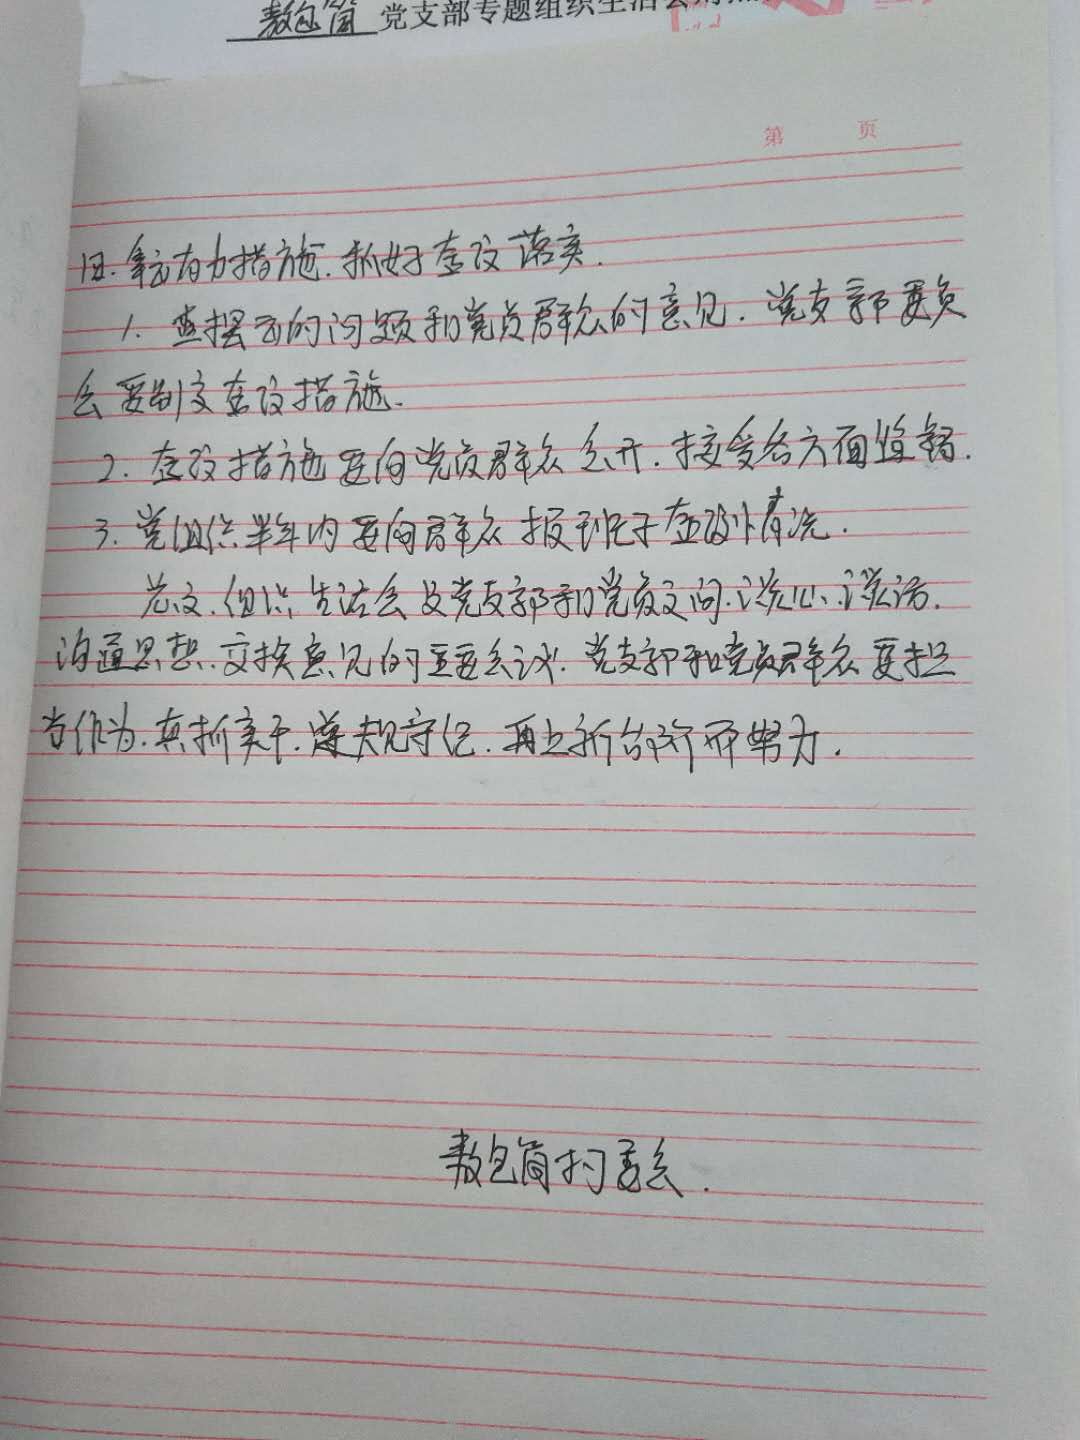 敖包筒 党支部专题组织生活会
第 页
四.拿出有力措施.抓好查改落实.
1. 查摆出的问题和党员群众的意见.党支部委员
会要制定查改措施.
2. 查改措施要向党员群众公开.接受各方面监督.
3. 党组织半年内要向群众报班子查改情况.
总之.组织生活会是党支部和党员之间.谈心.谈话.
沟通思想.交换意见的重要会议.党支部和党员群众要担
当作为.真抓实干.遵规守纪.再上新台阶而努力.
敖包筒村委会.